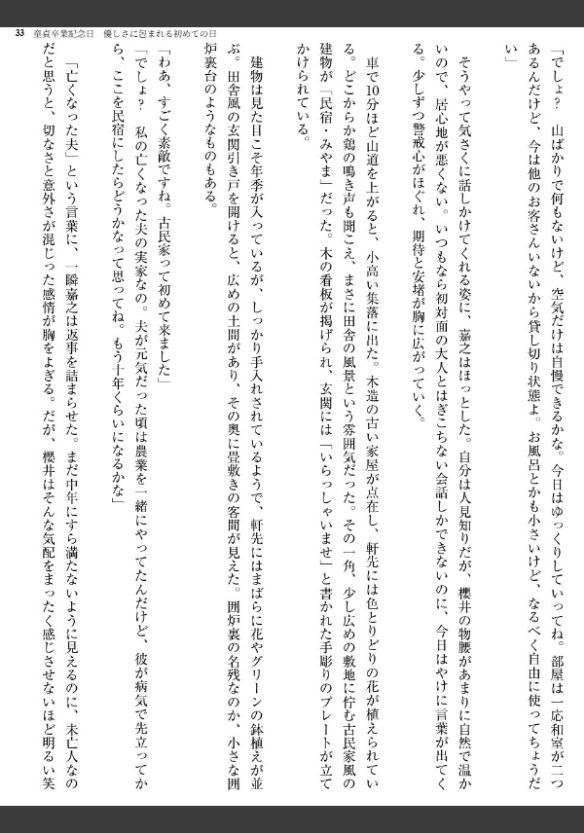 33 童貞卒業記念日 優しさに包まれる初めての日
「でしょ? 山ばかりで何もないけど、空気だけは自慢できるかな。今日はゆっくりしていってね。部屋は一応和室が二つ
あるんだけど、今は他のお客さんいないから貸し切り状態よ。お風呂とかも小さいけど、なるべく自由に使ってちょうだ
い」
そうやって気さくに話しかけてくれる姿に、嘉之はほっとした。自分は人見知りだが、櫻井の物腰があまりに自然で温か
いので、居心地が悪くない。いつもなら初対面の大人とはぎこちない会話しかできないのに、今日はやけに言葉が出てく
る。少しずつ警戒心がほぐれ、期待と安堵が胸に広がっていく。
車で10分ほど山道を上がると、小高い集落に出た。木造の古い家屋が点在し、軒先には色とりどりの花が植えられてい
る。どこからか鶏の鳴き声も聞こえ、まさに田舎の風景という雰囲気だった。その一角、少し広めの敷地に佇む古民家風の
建物が「民宿・みやま」だった。木の看板が掲げられ、玄関には「いらっしゃいませ」と書かれた手彫りのプレートが立て
かけられている。
建物は見た目こそ年季が入っているが、しっかり手入れされているようで、軒先にはまばらに花やグリーンの鉢植えが並
ぶ。田舎風の玄関引き戸を開けると、広めの土間があり、その奥に畳敷きの客間が見えた。囲炉裏の名残なのか、小さな囲
炉裏台のようなものもある。
「わあ、すごく素敵ですね。古民家って初めて来ました」
「でしょ? 私の亡くなった夫の実家なの。夫が元気だった頃は農業を一緒にやってたんだけど、彼が病気で先立ってか
ら、ここを民宿にしたらどうかなって思ってね。もう十年くらいになるかな」
「亡くなった夫」という言葉に、一瞬嘉之は返事を詰まらせた。まだ中年にすら満たないように見えるのに、未亡人なの
だと思うと、切なさと意外さが混じった感情が胸をよぎる。だが、櫻井はそんな気配をまったく感じさせないほど明るい笑